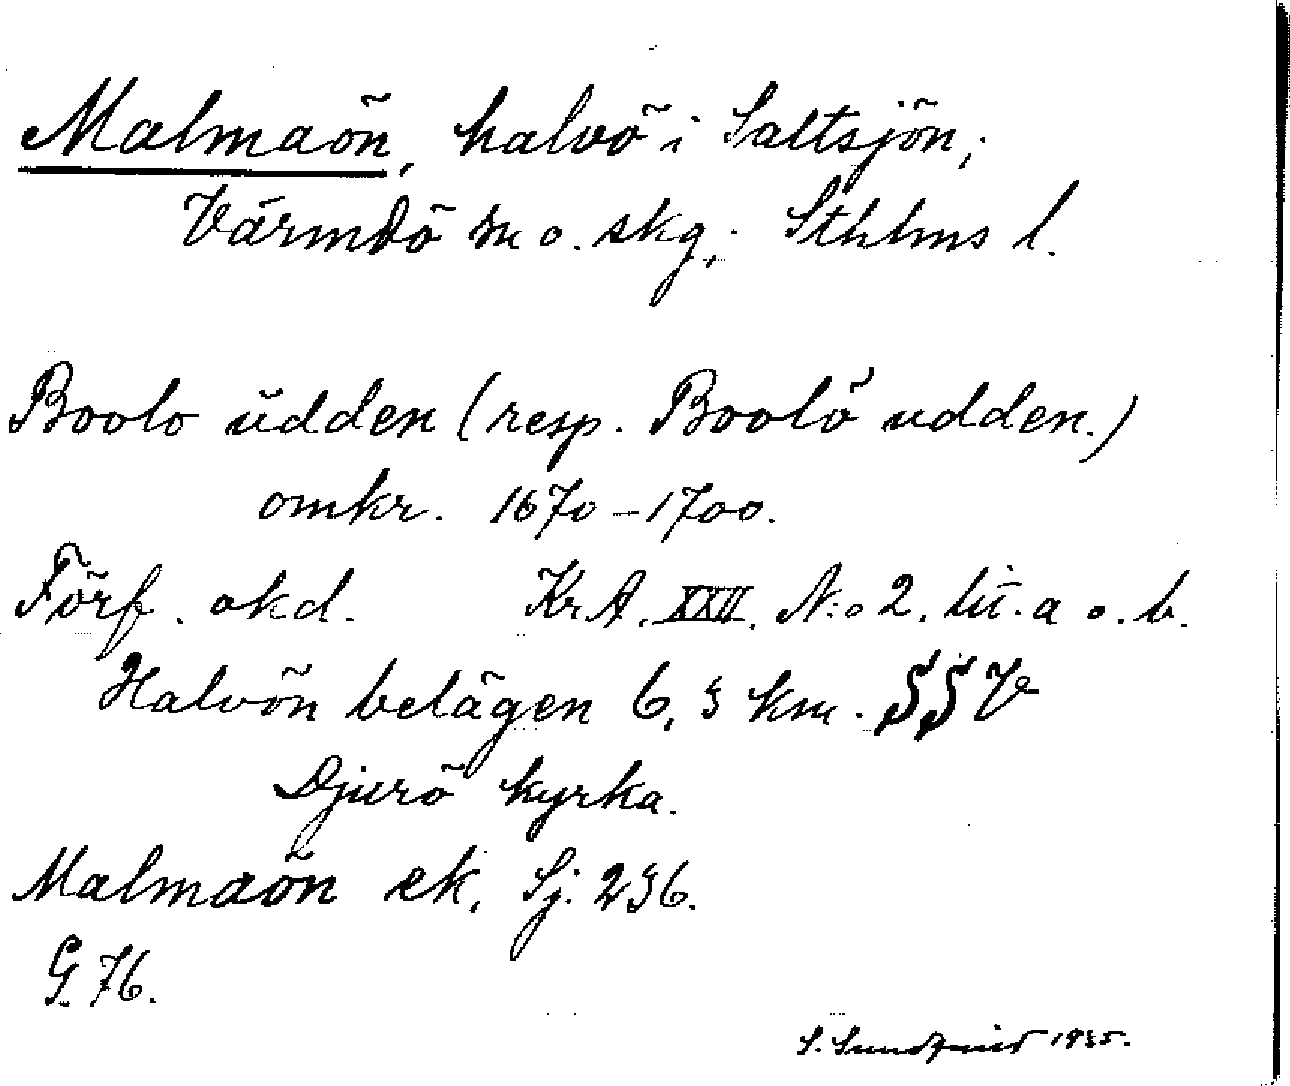 Malmaön, halvö i Saltsjön;
Värmdö sn o. skg; Sthlms l.
Boolo ŭdden (resp. Boolö udden.)
omkr. 1670-1700.
Förf. okd. KrA. XXII. N:o 2. lit. a o. b.
Halvön belägen 6,3 km. SSV
Djurö kyrka.
Malmaön ek. Sj. 236.
G. 76.
S. Sundqvist 1935.